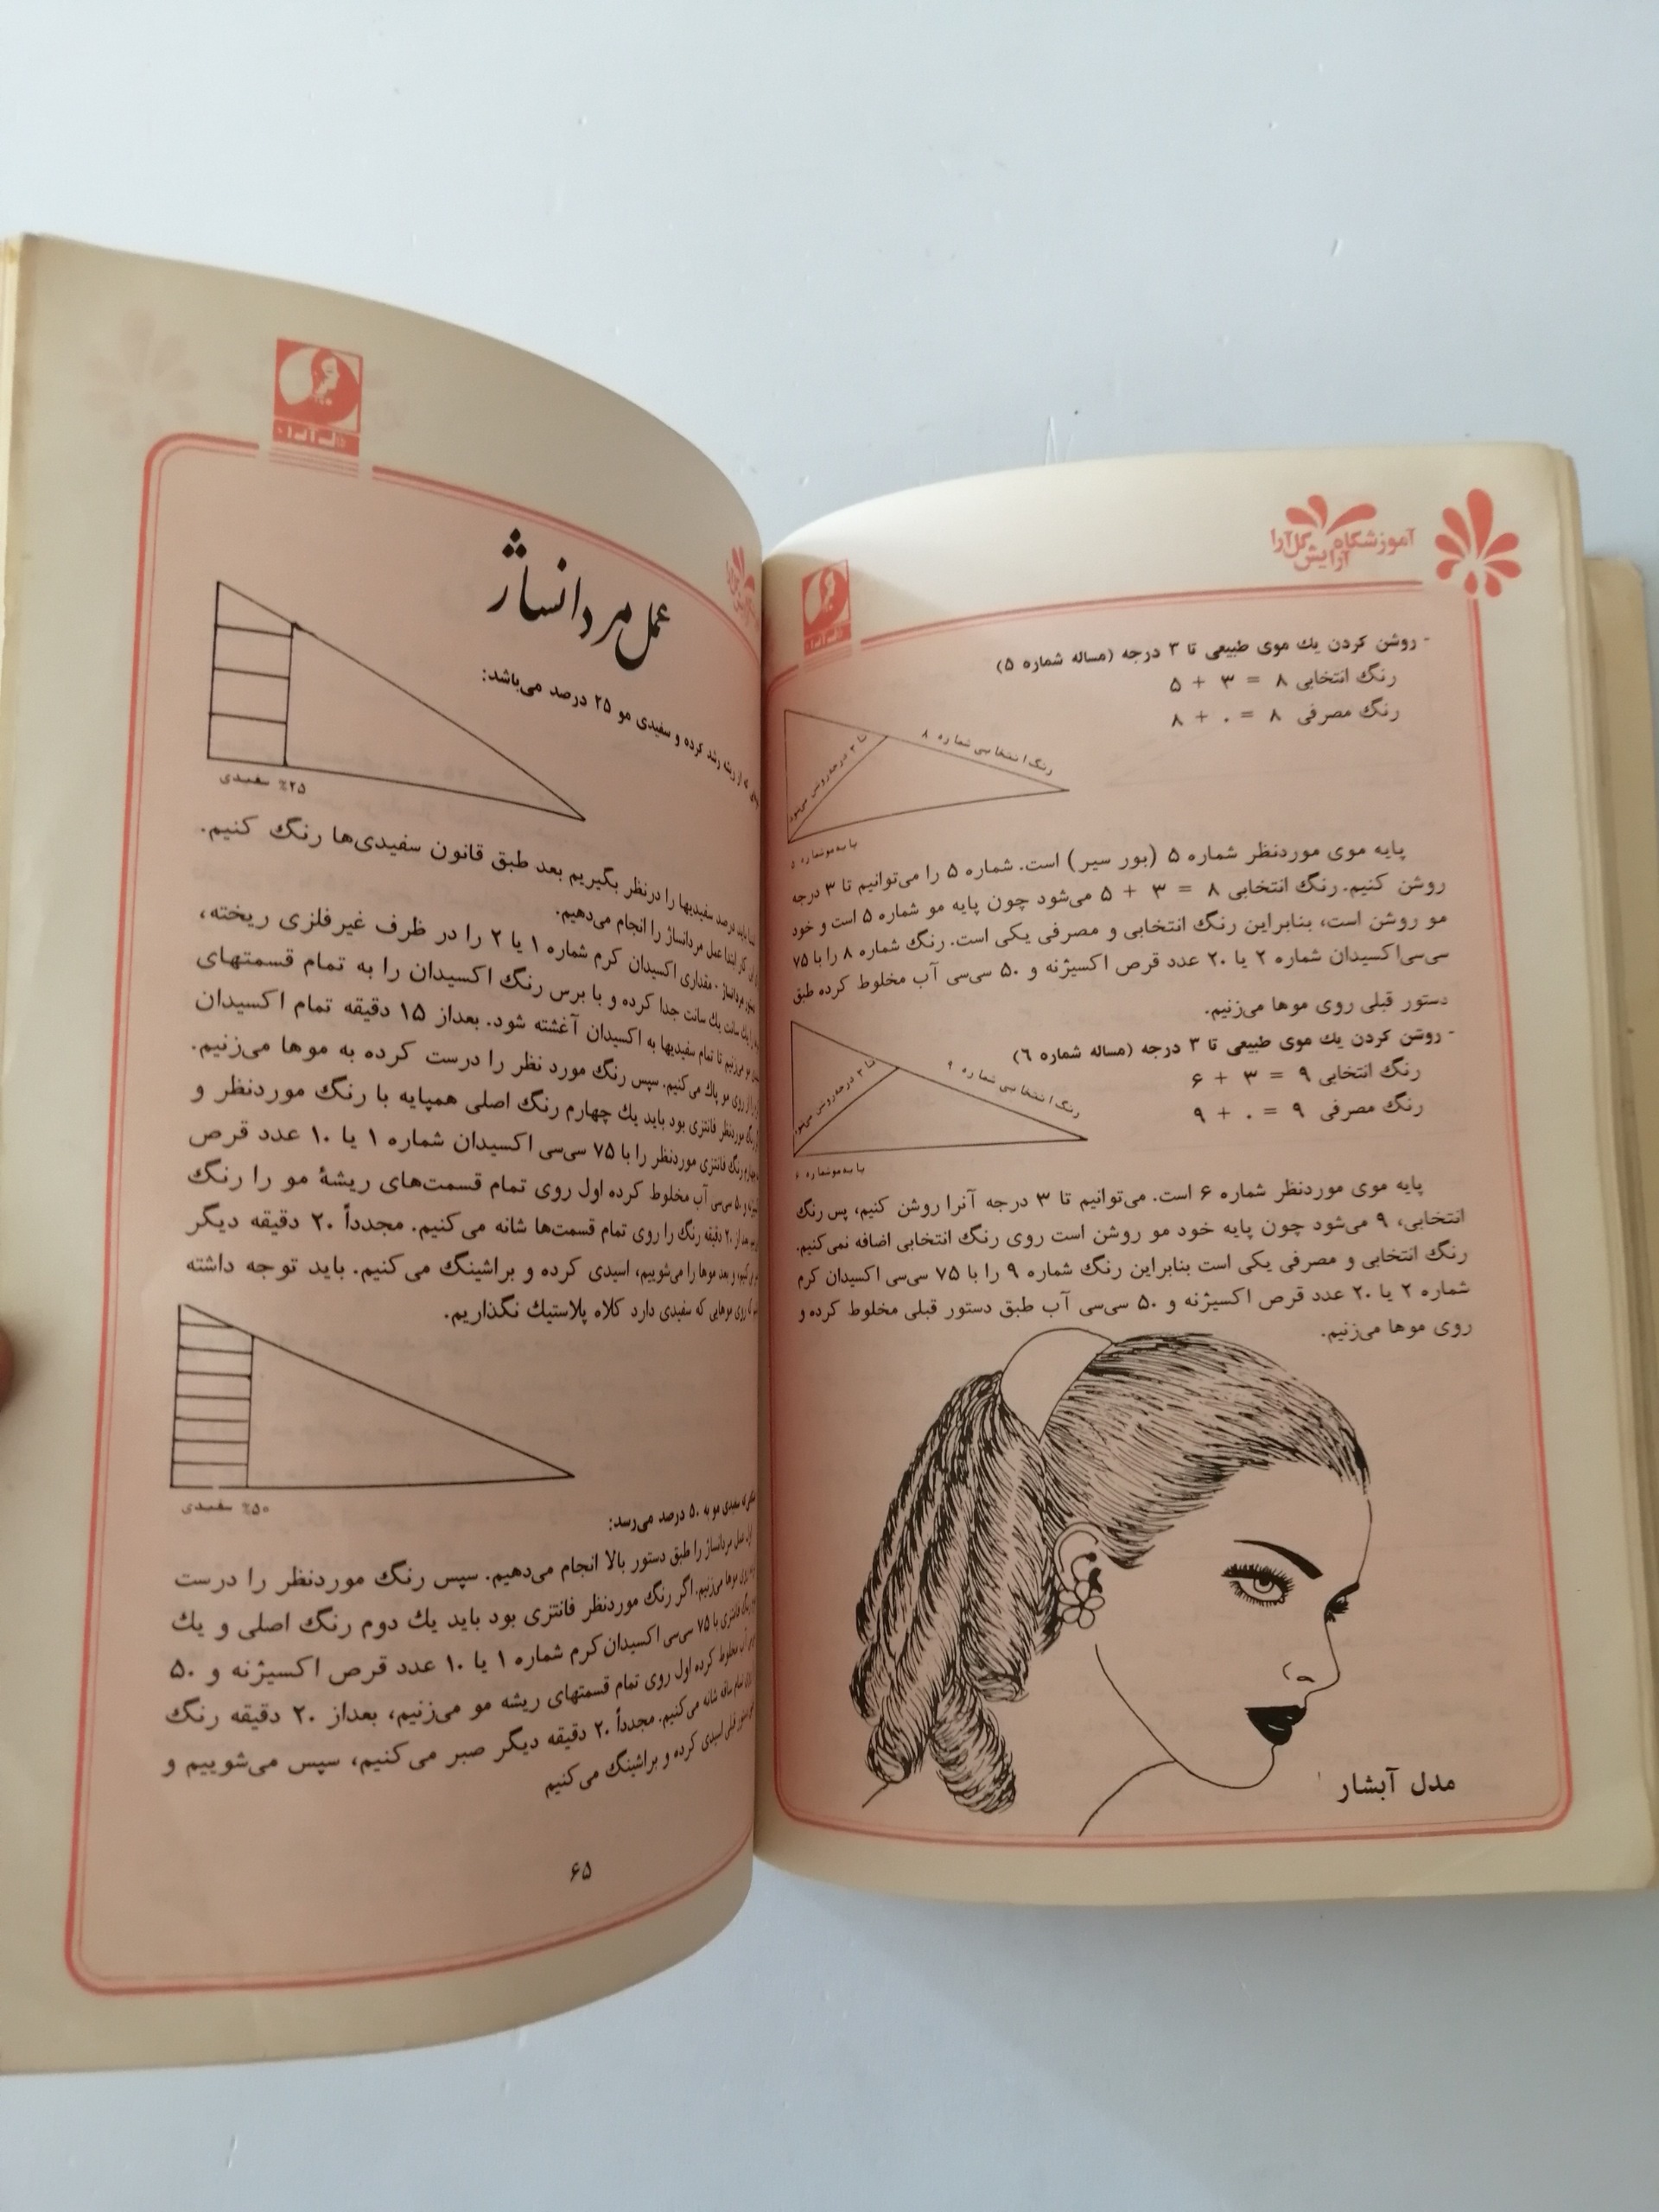 آموزشگاه
آرایش گل‌آرا
- روشن کردن یك موی طبیعی تا ۳ درجه (مساله شماره ۵)
رنگ انتخابی ۸ = ۳ + ۵
رنگ مصرفی ۸ = ۰ + ۸
رنگ انتخابی شماره ۸
تا ۳ درجه روشن می‌شود
پایه مو شماره ۵
پایه موی موردنظر شماره ۵ (بور سیر) است. شماره ۵ را می‌توانیم تا ۳ درجه
روشن کنیم. رنگ انتخابی ۸ = ۳ + ۵ می‌شود چون پایه مو شماره ۵ است و خود
مو روشن است، بنابراین رنگ انتخابی و مصرفی یکی است. رنگ شماره ۸ را با ۷۵
سی‌سی اکسیدان شماره ۲ یا ۲۰ عدد قرص اکسیژنه و ۵۰ سی‌سی آب مخلوط کرده طبق
دستور قبلی روی موها می‌زنیم.
- روشن کردن یك موی طبیعی تا ۳ درجه (مساله شماره ٦)
رنگ انتخابی ۹ = ۳ + ۶
رنگ مصرفی ۹ = ۰ + ۹
رنگ انتخابی شماره ۹
تا ۳ درجه روشن می‌شود
پایه مو شماره ۶
پایه موی موردنظر شماره ۶ است. می‌توانیم تا ۳ درجه آنرا روشن کنیم، پس رنگ
انتخابی، ۹ می‌شود چون پایه خود مو روشن است روی رنگ انتخابی اضافه نمی‌کنیم.
رنگ انتخابی و مصرفی یکی است بنابراین رنگ شماره ۹ را با ۷۵ سی‌سی اکسیدان کرم
شماره ۲ یا ۲۰ عدد قرص اکسیژنه و ۵۰ سی‌سی آب طبق دستور قبلی مخلوط کرده و
روی موها می‌زنیم.
مدل آبشار
عمل مردانساژ
که از ریشه رشد کرده و سفیدی مو ۲۵ درصد می‌باشد:
۲۵٪ سفیدی
باید درصد سفیدیها را درنظر بگیریم بعد طبق قانون سفیدی‌ها رنگ کنیم.
کار ابتدا عمل مردانساژ را انجام می‌دهیم.
مردانساژ - مقداری اکسیدان کرم شماره ۱ یا ۲ را در ظرف غیرفلزی ریخته،
را یك سانت یك سانت جدا کرده و با برس رنگ اکسیدان را به تمام قسمتهای
مو می‌زنیم تا تمام سفیدیها به اکسیدان آغشته شود. بعداز ۱۵ دقیقه تمام اکسیدان
را از روی مو پاك می‌کنیم. سپس رنگ مورد نظر را درست کرده به موها می‌زنیم.
رنگ موردنظر فانتزی بود باید یك چهارم رنگ اصلی همپایه با رنگ موردنظر و
چهارم رنگ فانتزی موردنظر را با ۷۵ سی‌سی اکسیدان شماره ۱ یا ۱۰ عدد قرص
و ۵۰ سی‌سی آب مخلوط کرده اول روی تمام قسمت‌های ریشهٔ مو را رنگ
بعد از ۲۰ دقیقه رنگ را روی تمام قسمت‌ها شانه می‌کنیم. مجدداً ۲۰ دقیقه دیگر
می‌کنیم و بعد موها را می‌شوییم، اسیدی کرده و براشینگ می‌کنیم. باید توجه داشته
که روی موهایی که سفیدی دارد کلاه پلاستیك نگذاریم.
۵۰٪ سفیدی
که سفیدی مو به ۵۰ درصد می‌رسد:
اول عمل مردانساژ را طبق دستور بالا انجام می‌دهیم. سپس رنگ موردنظر را درست
موها می‌زنیم. اگر رنگ موردنظر فانتزی بود باید یك دوم رنگ اصلی و یك
رنگ فانتزی با ۷۵ سی‌سی اکسیدان کرم شماره ۱ یا ۱۰ عدد قرص اکسیژنه و ۵۰
آب مخلوط کرده اول روی تمام قسمتهای ریشه مو می‌زنیم، بعداز ۲۰ دقیقه رنگ
تمام ساقه شانه می‌کنیم. مجدداً ۲۰ دقیقه دیگر صبر می‌کنیم، سپس می‌شوییم و
دستور قبلی اسیدی کرده و براشینگ می‌کنیم
۶۵